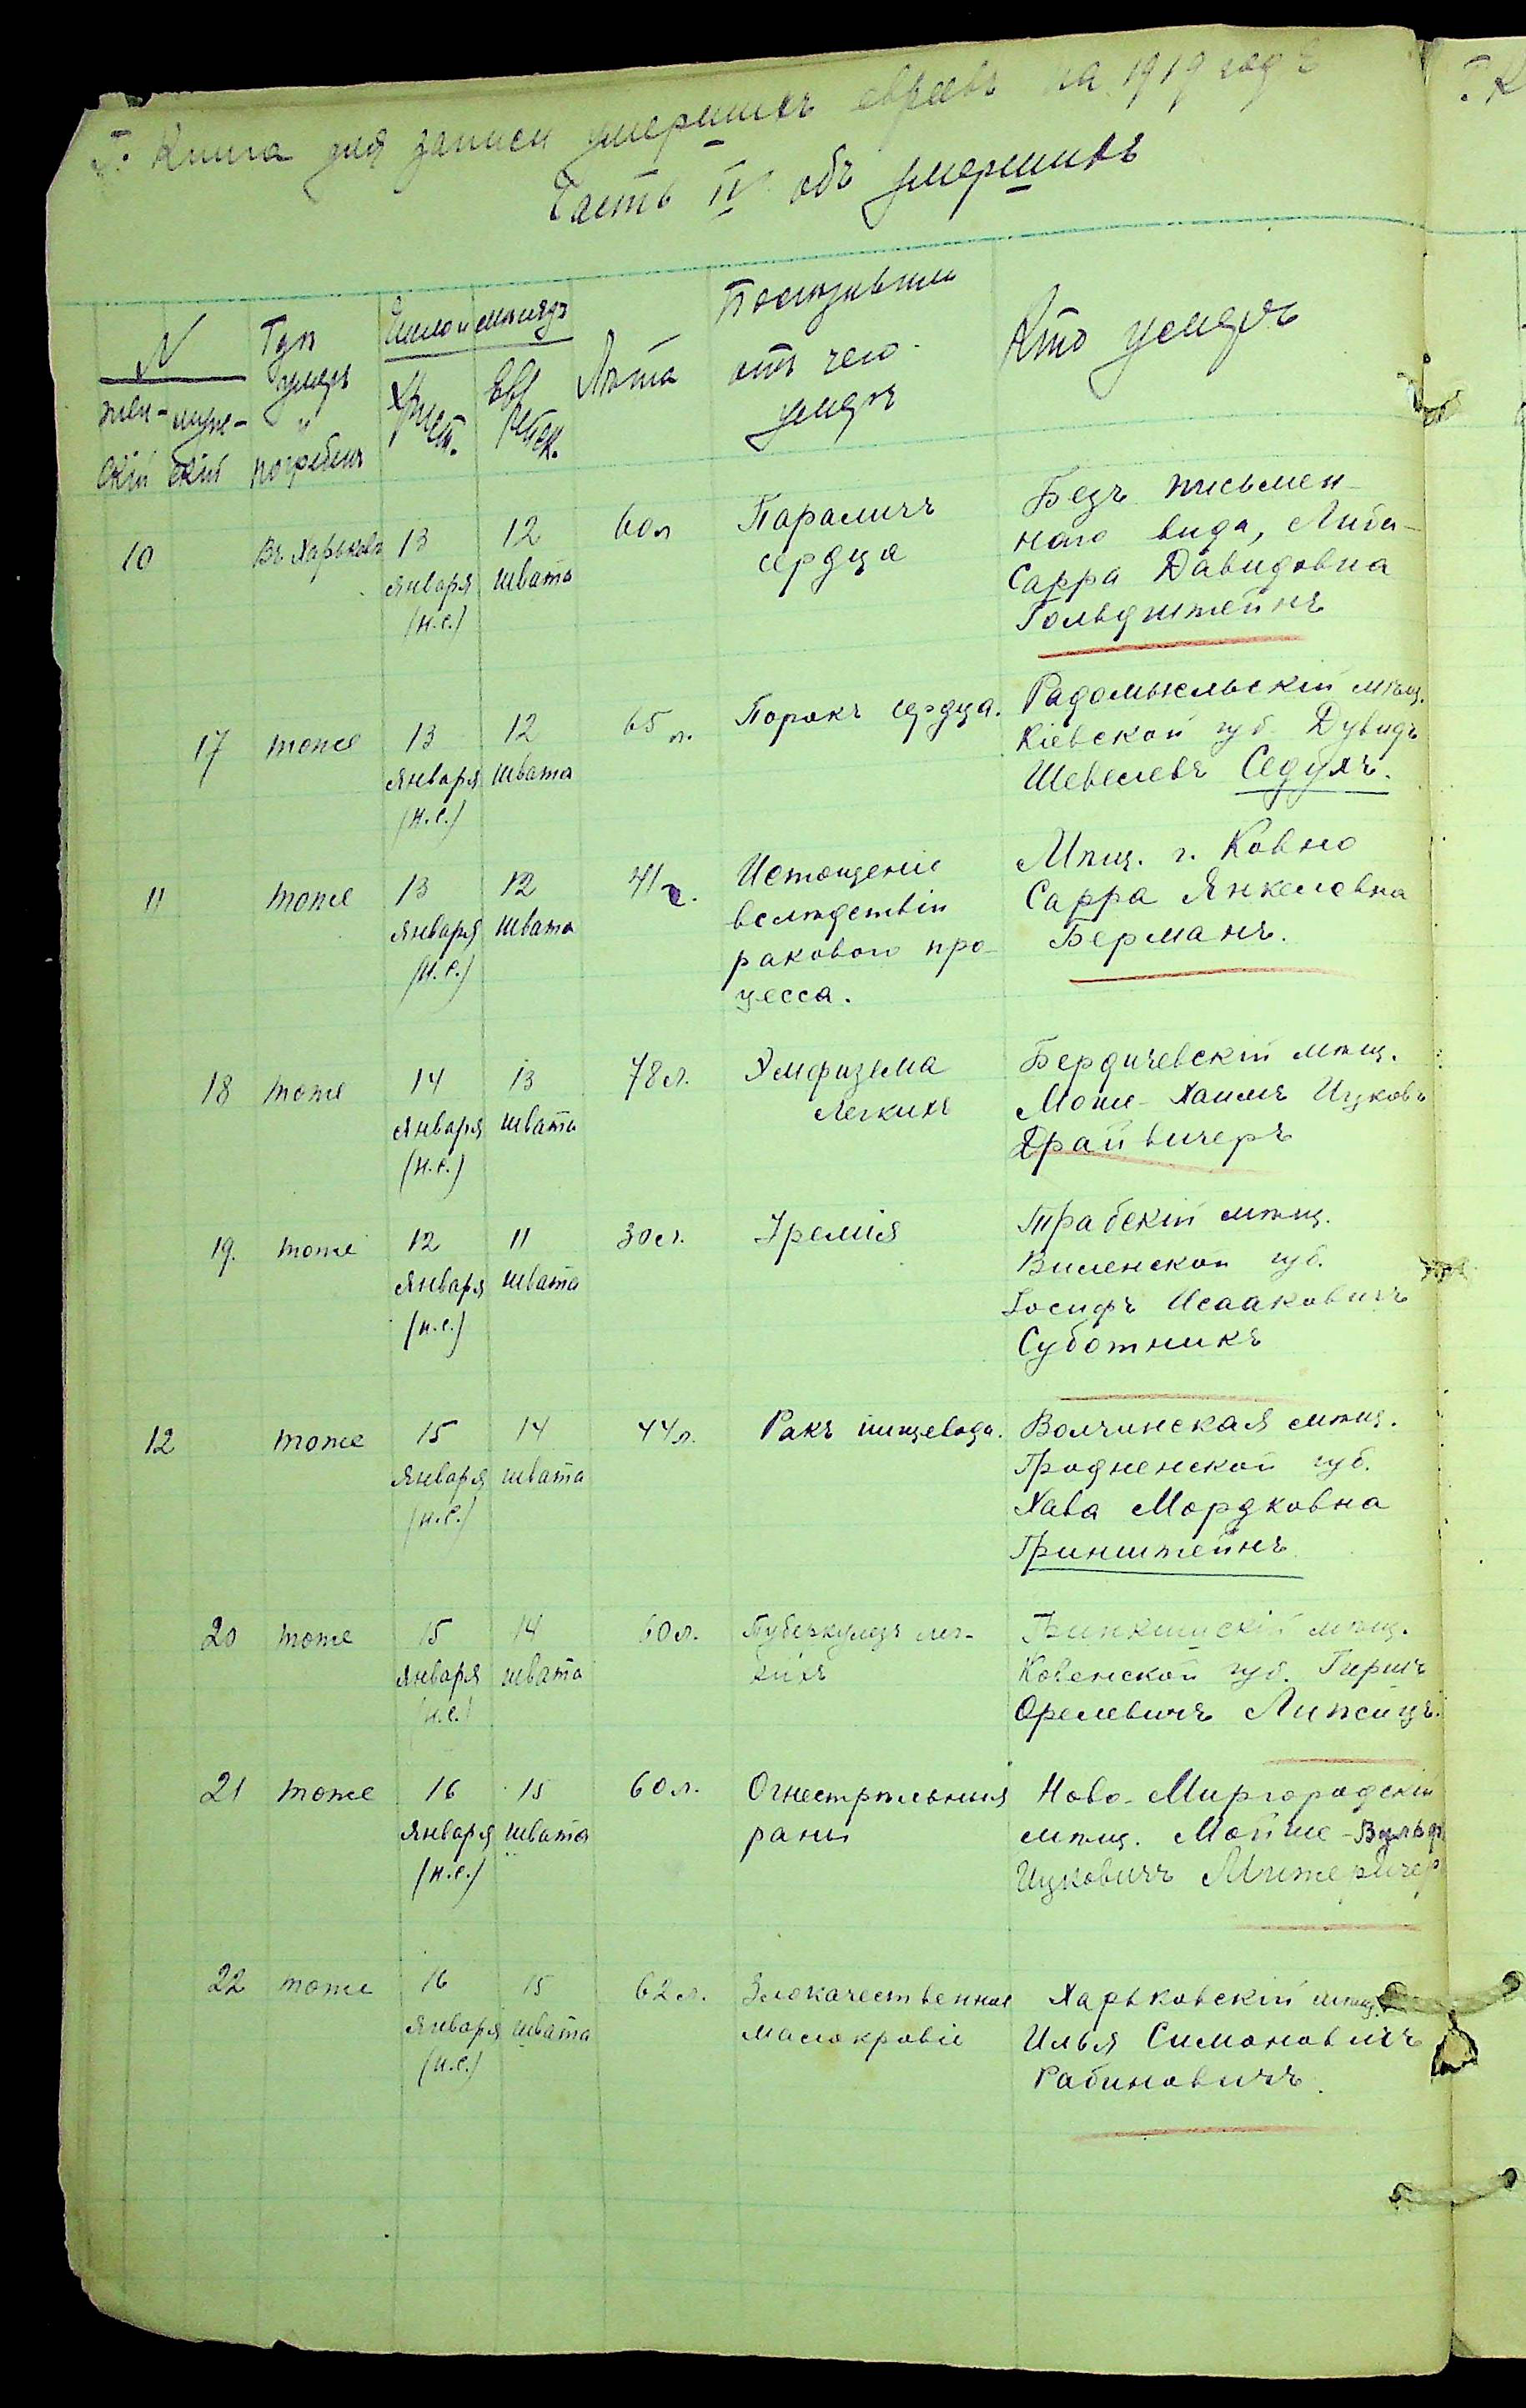 Книга для записи умершихъ евреевъ на 1919 годъ
Часть IV объ умершихъ
N
жен-
скій
муже-
скій
Гдѣ
умеръ
и
погребенъ
Число и мѣсяцъ
Христ.
Еврейск.
Лѣта
Болѣзнь или
отъ чего
умеръ
Кто умеръ
10
Въ Харьковѣ
13
января
(н.с.)
12
швата
60 л
Параличъ
сердца
Безъ письмен-
наго вида, Либа-
Сарра Давидовна
Гольдштейнъ
17
тоже
13
января
(н.с.)
12
швата
65 л.
Порокъ сердца.
Радомысльскій мѣщ.
Кіевской губ. Дувидъ
Шевелевъ Седухъ.
11
тоже
13
января
(н.с.)
12
швата
41 г.
Истощеніе
вслѣдствіи
раковаго про-
цесса.
Мѣщ. г. Ковно
Сарра Янкелевна
Берманъ.
18
тоже
14
января
(н.с.)
13
швата
78 л.
Эмфизема
легкихъ
Бердичевскій мѣщ.
Моше-Хаимъ Ицковъ
Драйвичеръ
19.
тоже
12
января
(н.с.)
11
швата
30 л.
Уремія
Трабскій мѣщ.
Виленской губ.
Іосифъ Исааковичъ
Суботникъ
12
тоже
15
января
(н.с.)
14
швата
44 л.
Ракъ пищевода.
Волчинская мѣщ.
Гродненской губ.
Хава Мордковна
Гринштейнъ
20
тоже
15
января
(н.с.)
14
швата
60 л.
Туберкулезъ лег-
кихъ
мѣщ.
Ковенской губ. Гиршъ
Орелевичъ Липсицъ.
21
тоже
16
января
(н.с.)
15
швата
60 л.
Огнестрѣльныя
раны
Ново-Миргородскій
мѣщ. Мойше-Вульфъ
Ицковичъ
22
тоже
16
января
(н.с.)
15
швата
62 л.
Злокачественное
малокровіе
Харьковскій мѣщ.
Илья Симоновичъ
Рабиновичъ.